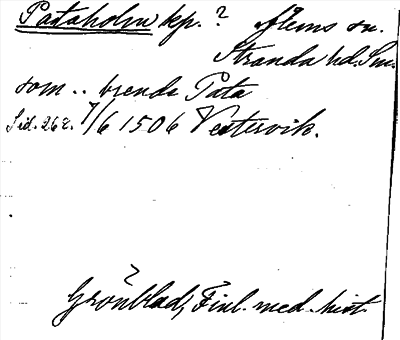 Pataholm kp.? Ålems sn.
Stranda hd. Sm.
som .. brende Pata
Sid. 262. 7/6 1506 Vestervik.
Grönblad, Finl. med. hist